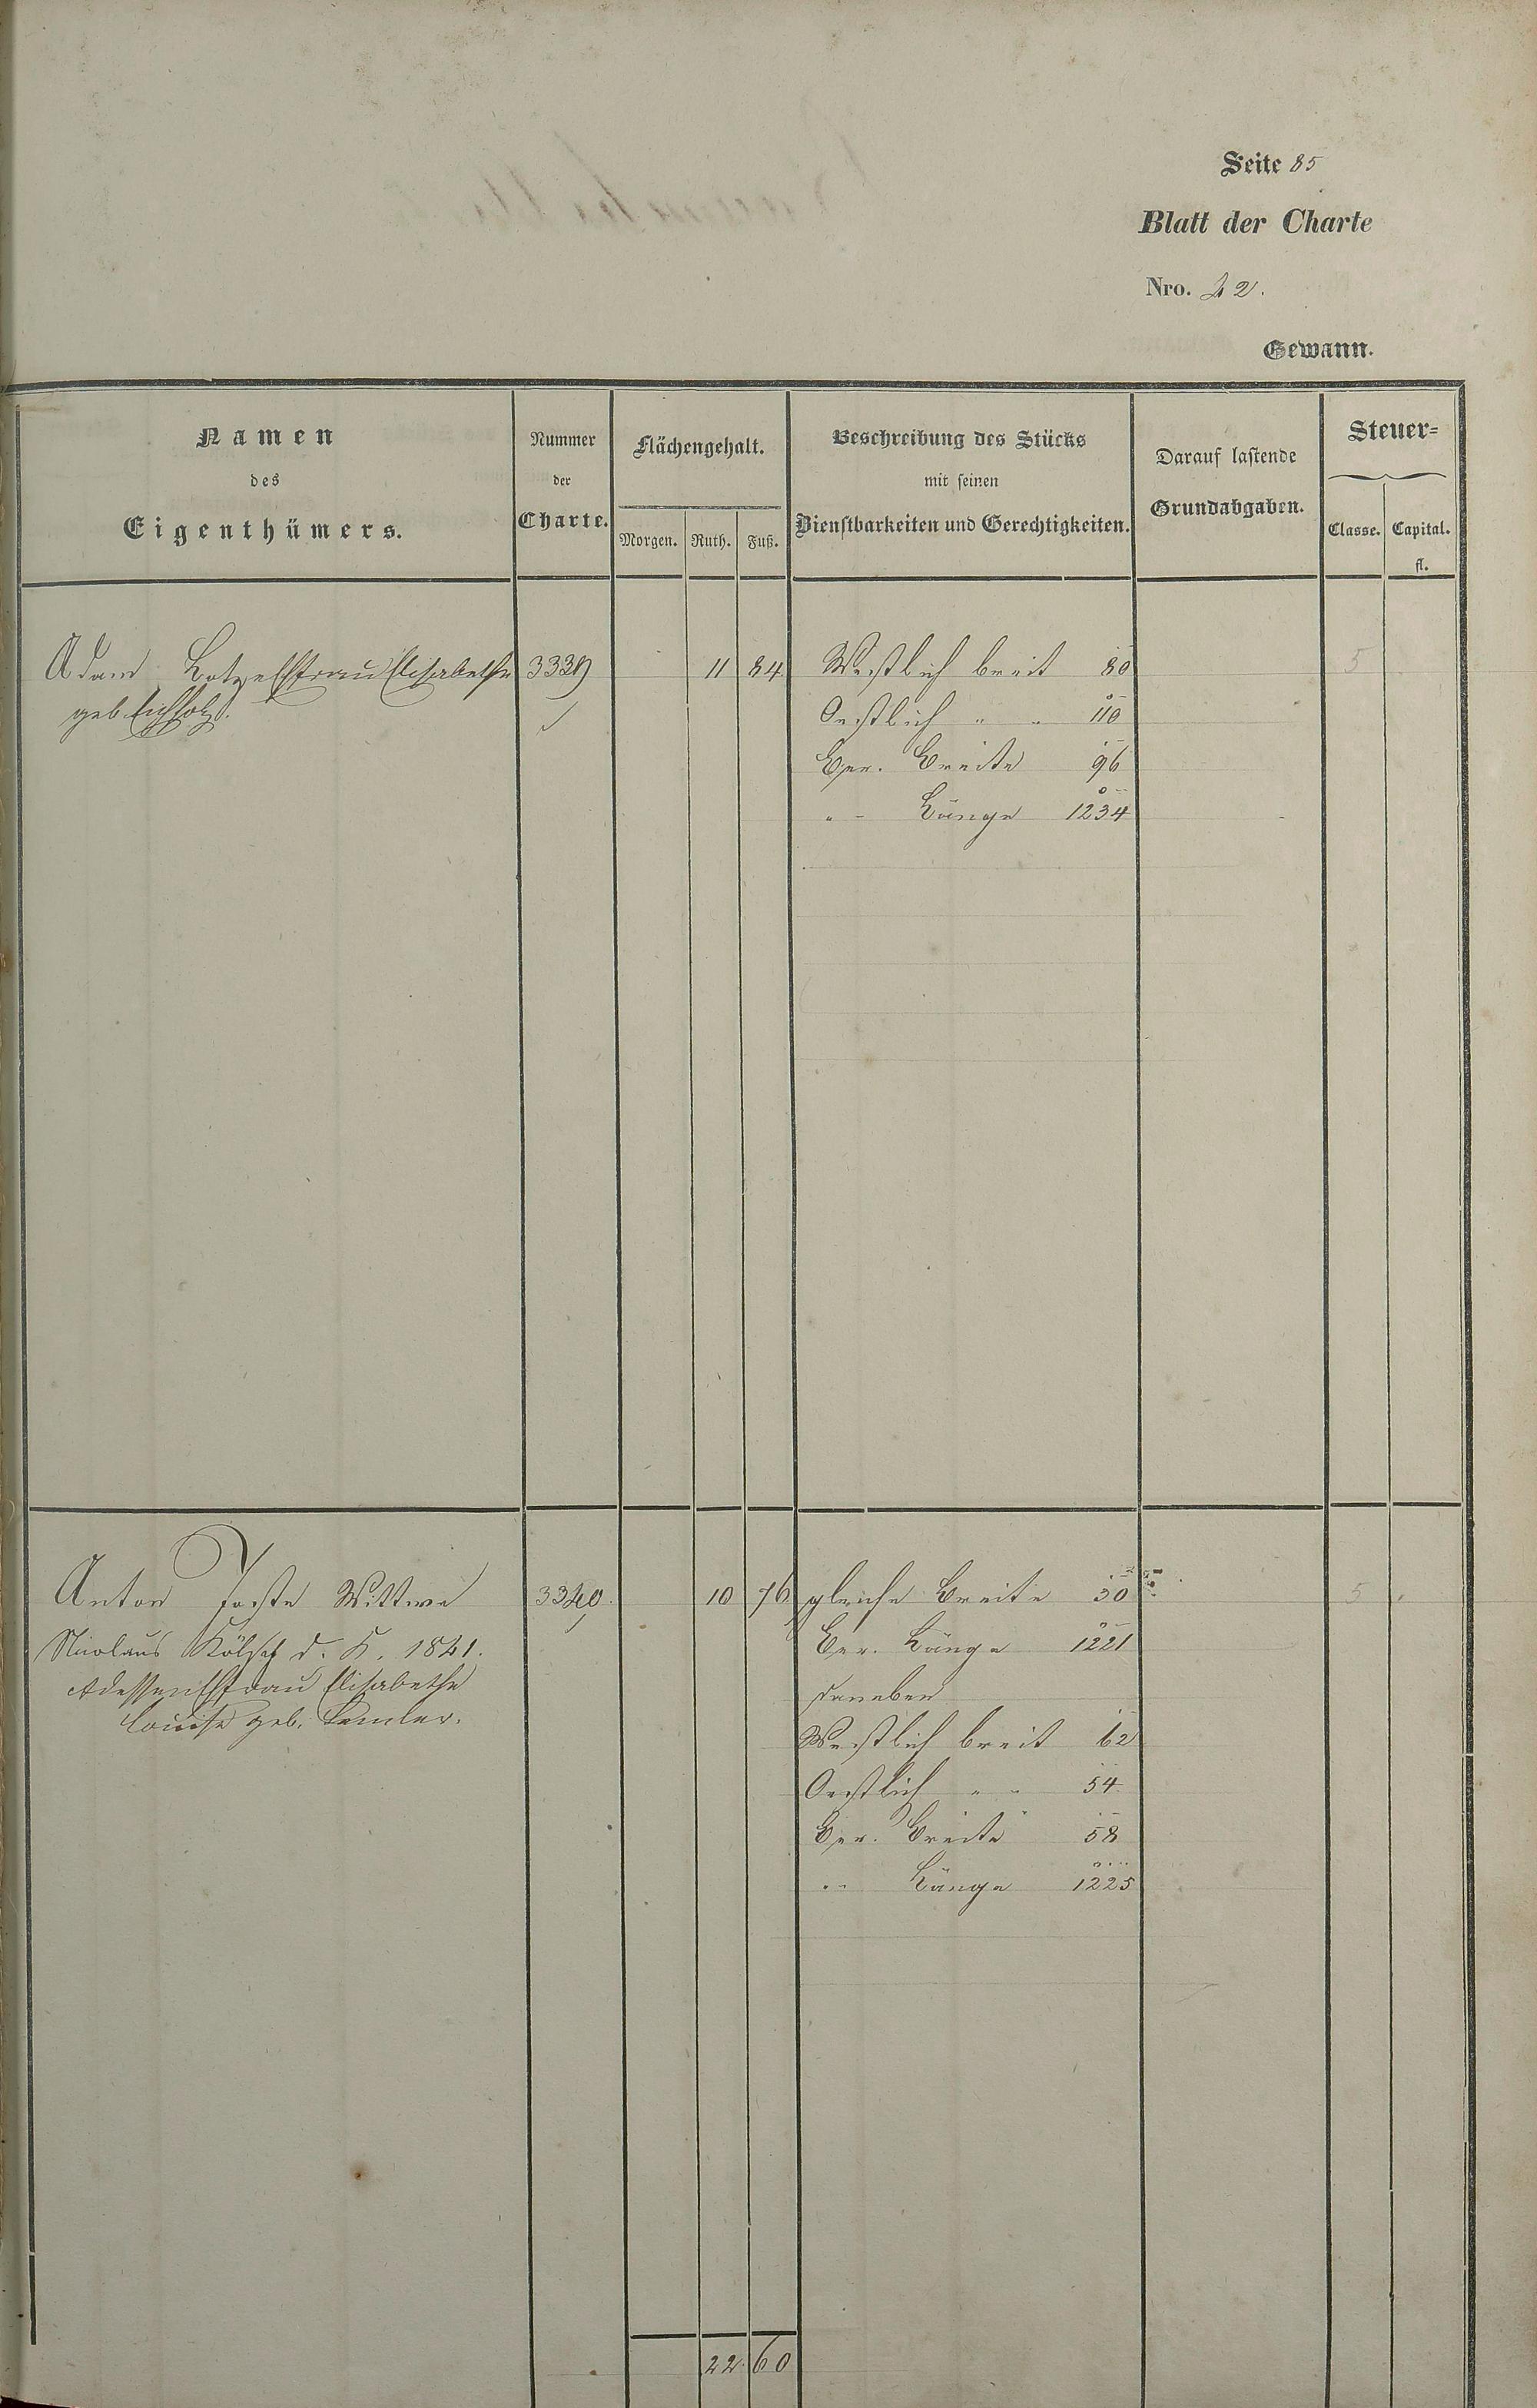 Seite 85
Blatt der Charte
Nro. 42.
Gewann.
Namen
des
Eigenthümers.
Nummer
der
Charte.
Flächengehalt.
Morgen. Ruth. Fuß.
Beschreibung des Stücks
mit seinen
Dienstbarkeiten und Gerechtigkeiten.
Darauf lastende
Grundabgaben.
Steuer=
Classe. Capital.
fl.
Adam Ehefrau Elisabetha 3339 11 84 Westlich breit 80 5
geb. Eichholz. Oestlich " " 110
Ber. Breite 96
" Länge 1234
Anton Wittwe 3340 10 76 gleiche Breite 30 5
Nicolaus Kölsch d. K. 1841. Ber. Länge 1221
dessen Ehefrau Elisabetha daneben
Louise geb. Westlich breit 62
Oestlich " " 54
Ber. Breite 58
" Länge 1225
22 60